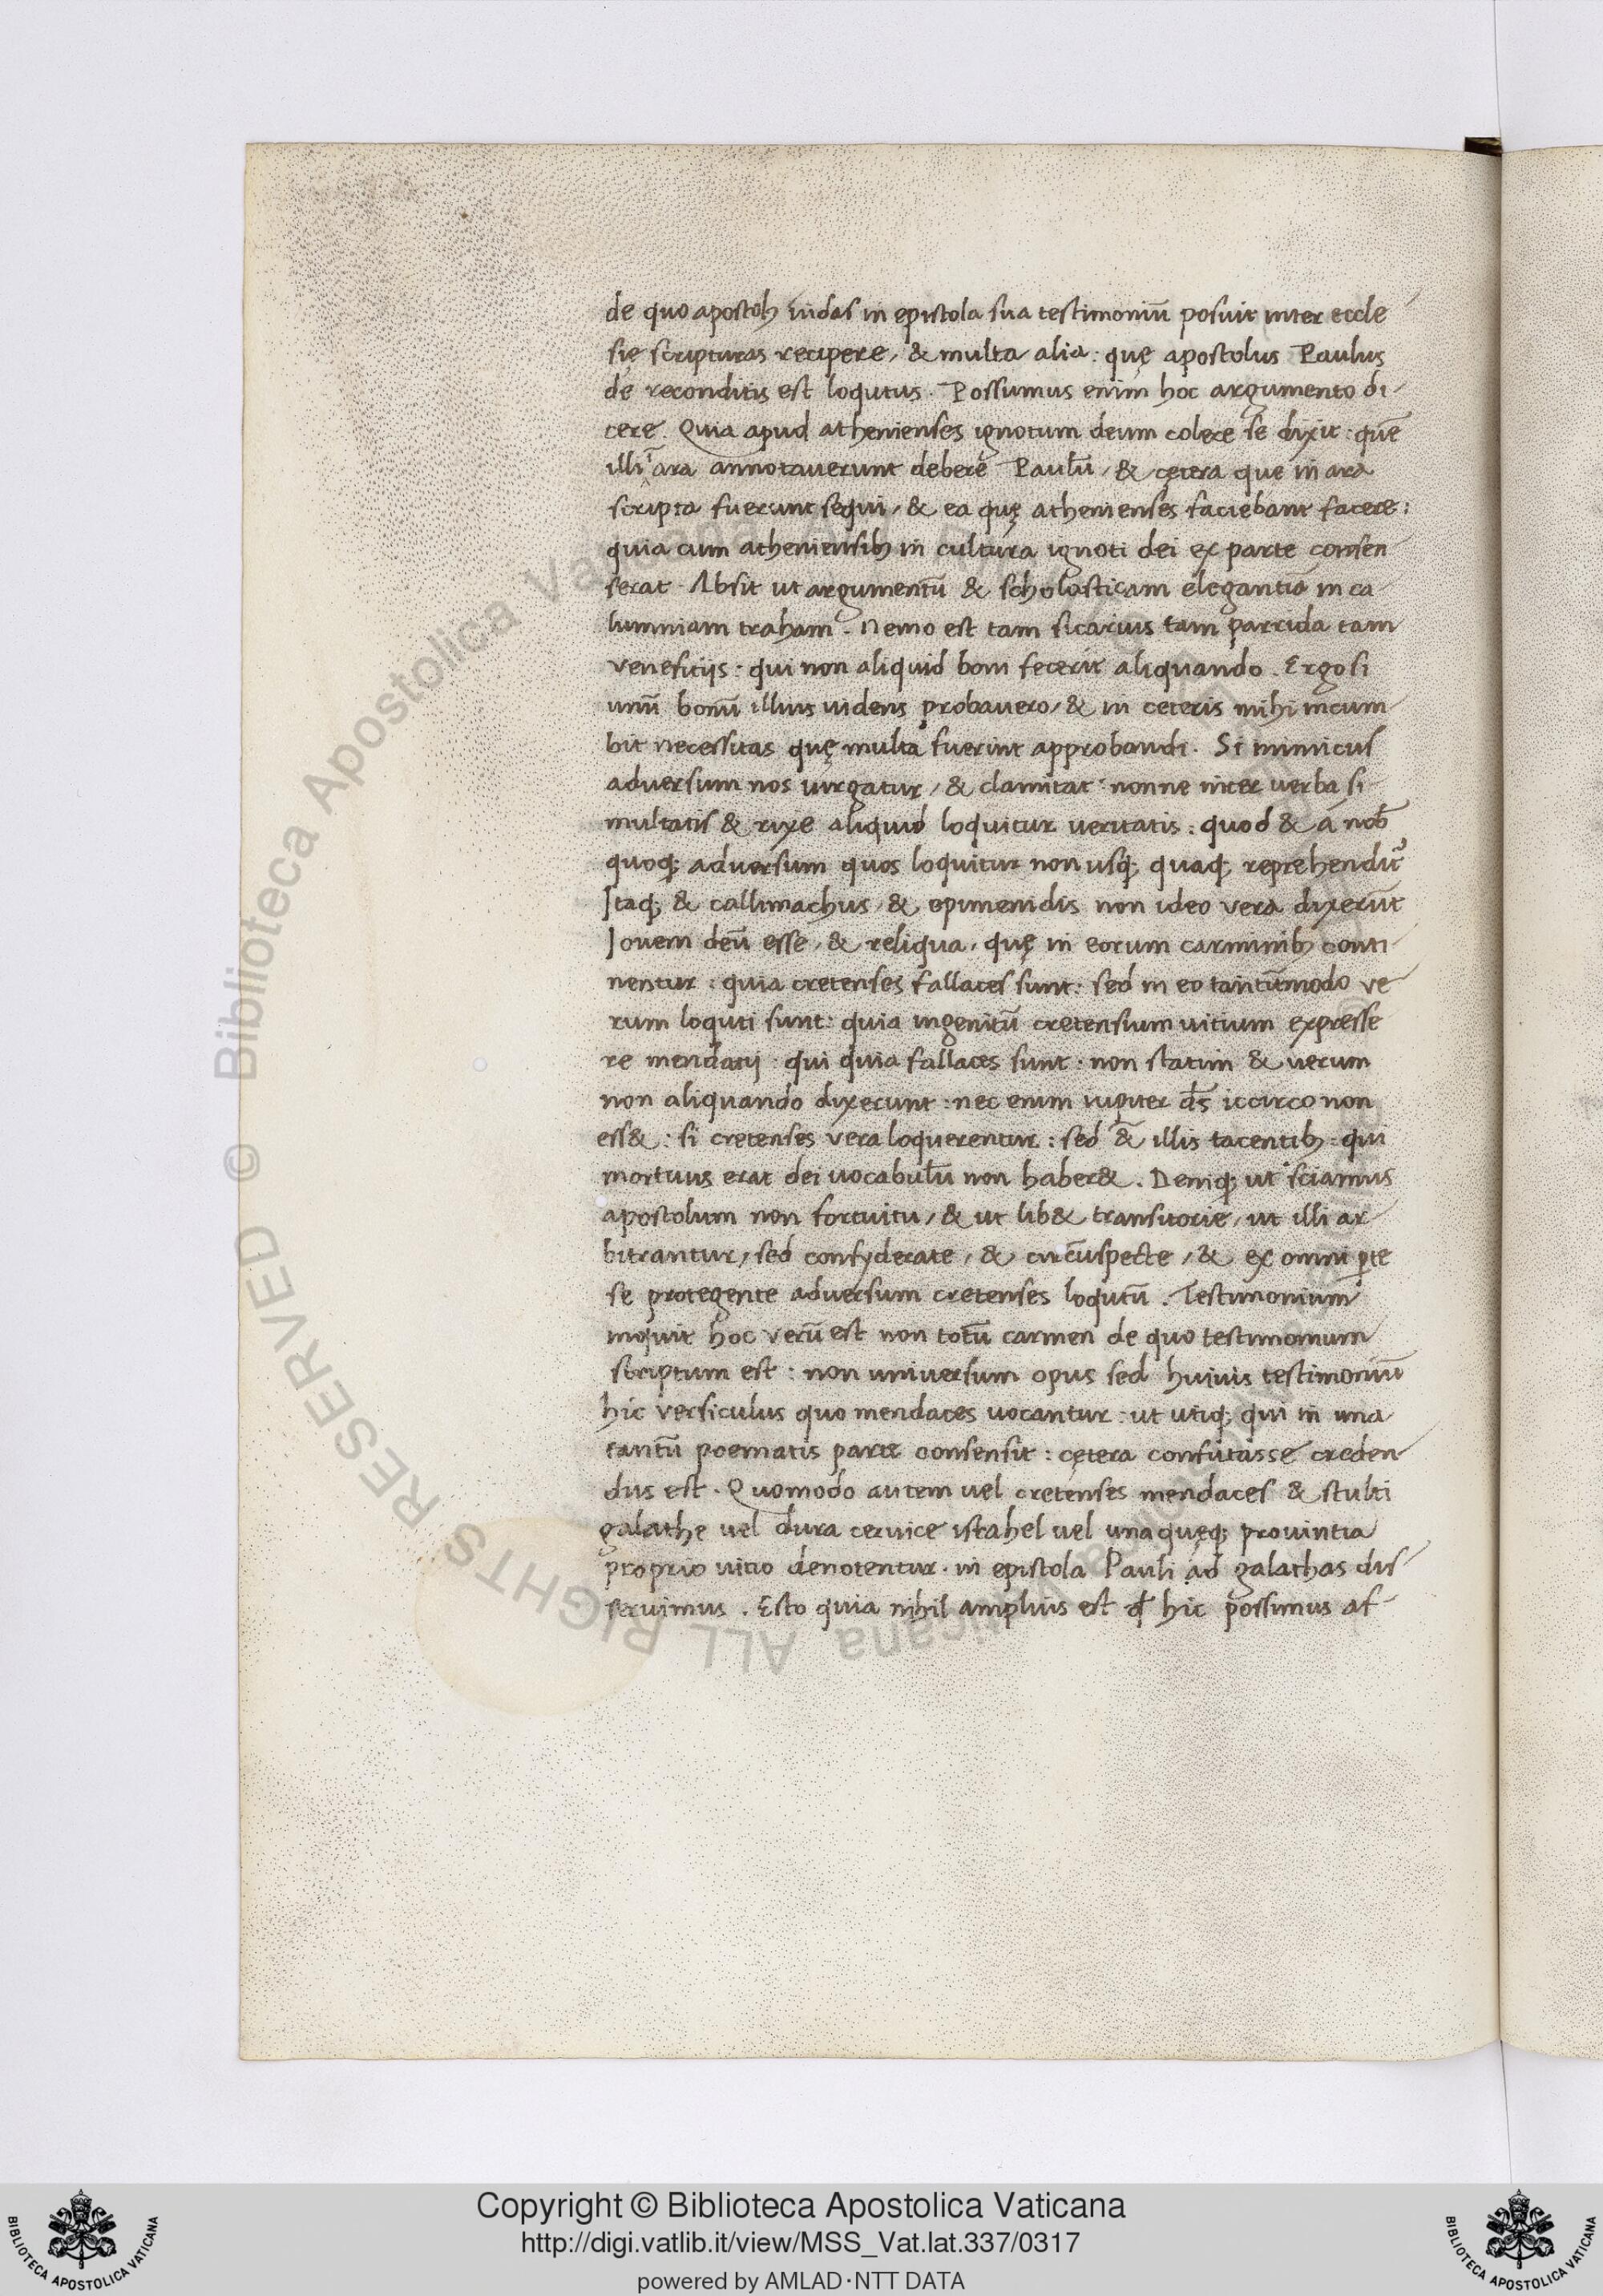 de quo apostolꝫ iudas in epistola sua testimoniũ posuit inter eccle
się scripturas recipere, & multa alia: quę apostolus Paulus
de reconditis est loqutus. Possumus enim hoc argumento di-
cere. Quia apud athenienses ignotum deum colere se dixit: quẽ
illi ĩ ara annotaverunt debere Paulũ, & cętera que in ara
scripta fuerunt sequi, & ea quę athenienses faciebant facere:
quia cum atheniensibꝫ in cultura ignoti dei ex parte consen
serat. Absit ut argumentũ & scholasticam elegantiã in ca
lumniam traham. Nemo est tam sicarius tam parricida tam
veneficijs: qui non aliquid boni fecerit aliquando. Ergo si
unũ bonũ illius videns probavero, & in ceteris mihi incum
bit necessitas quę multa fuerint approbandi. Si inimicus
adversum nos iurgatur, & clamitat: nonne inter verba si-
multatis & rixe aliquid loquitur veritatis: quod & á nob̃
quoqꝫ adversum quos loquitur non usqꝫ quaqꝫ reprehendit᷑
Itaqꝫ & callimachus, & epimenidis non ideo vera dixerũt
Iovem deũ esse, & reliqua, quę in eorum carminibꝫ conti-
nentur: quia cretenses fallaces sunt: sed in eo tantũmodo ve
rum loquti sunt: quia ingenitũ cretensium vitium expresse
re mendacij: qui quia fallaces sunt: non statim & verum
non aliquando dixerunt: nec enim iupiter d̃s iccirco non
ess&: si cretenses vera loquerentur: sed & illis tacentibꝫ: qui
mortuus erat dei vocabulũ non haber&. Deniqꝫ ut sciamus
apostolum non fortuitu, & ut lib& transitorie, ut illi ar
bitrantur, sed consyderate, & circũspecte, & ex omni ꝑte
se protegente adversum cretenses loqutũ. Testimonium
inquit hoc verũ est non totũ carmen de quo testimonium
scriptum est: non universum opus sed huiuis testimoniũ
hic versiculus quo mendaces vocantur: ut utiqꝫ qui in una
tantũ poematis parte consensit: cętera confutasse creden
dus est. Quomodo autem vel cretenses mendaces & stulti
galathe vel dura cervice istahel vel una quęqꝫ provintia
proprio vitio denotentur. in epistola Pauli ad galathas dis
servimus. Esto quia nihil amplius est qđ hic possimus af-
Copyright © Biblioteca Apostolica Vaticana
http://digi.vatlib.it/view/MSS_Vat.lat.337/0317
powered by AMLAD·NTT DATA
BIBLIOTECA APOSTOLICA VATICANA
BIBLIOTECA APOSTOLICA VATICANA
© Biblioteca Apostolica Vaticana
ALL RIGHTS RESERVED